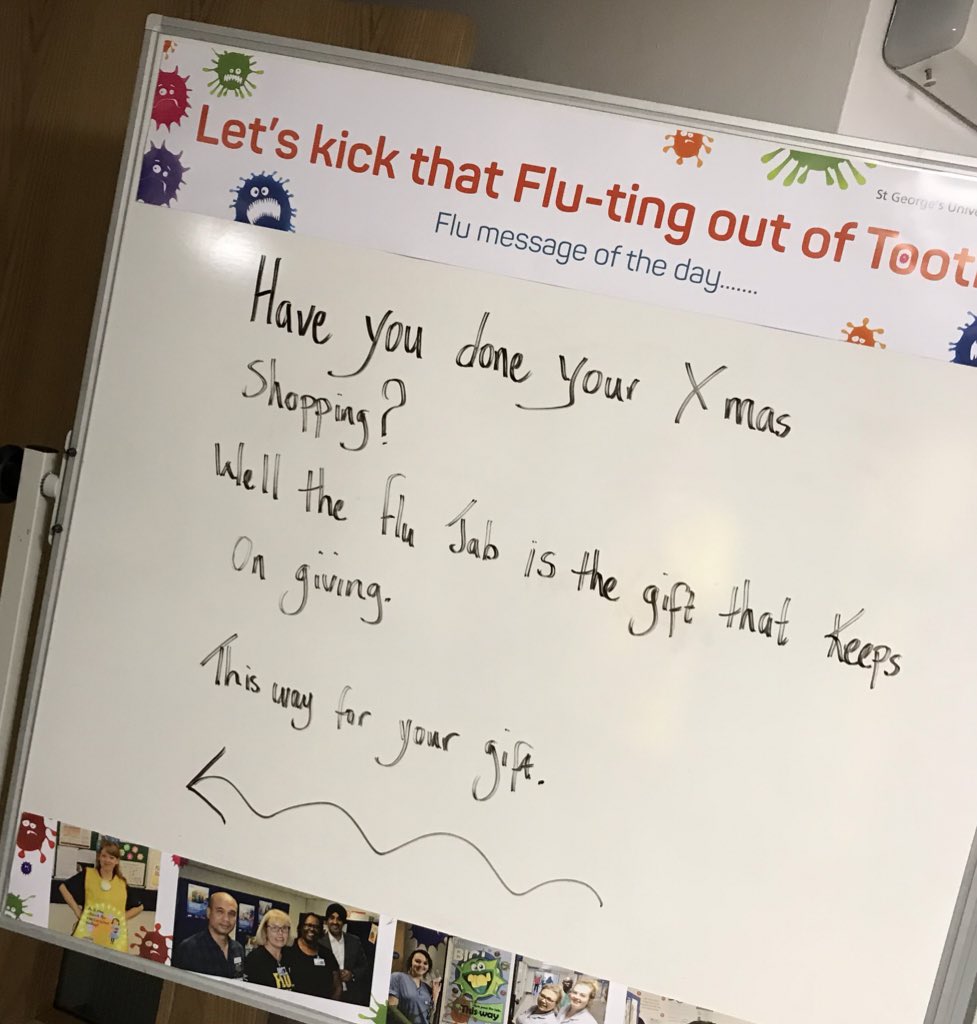 Let's kick that Flu-ting out of
St George's
Flu message of the day.......
Have you done your Xmas
Shopping?
Well the flu Jab is the gift that keeps
On giving.
This way for your gift.
FLU
This way